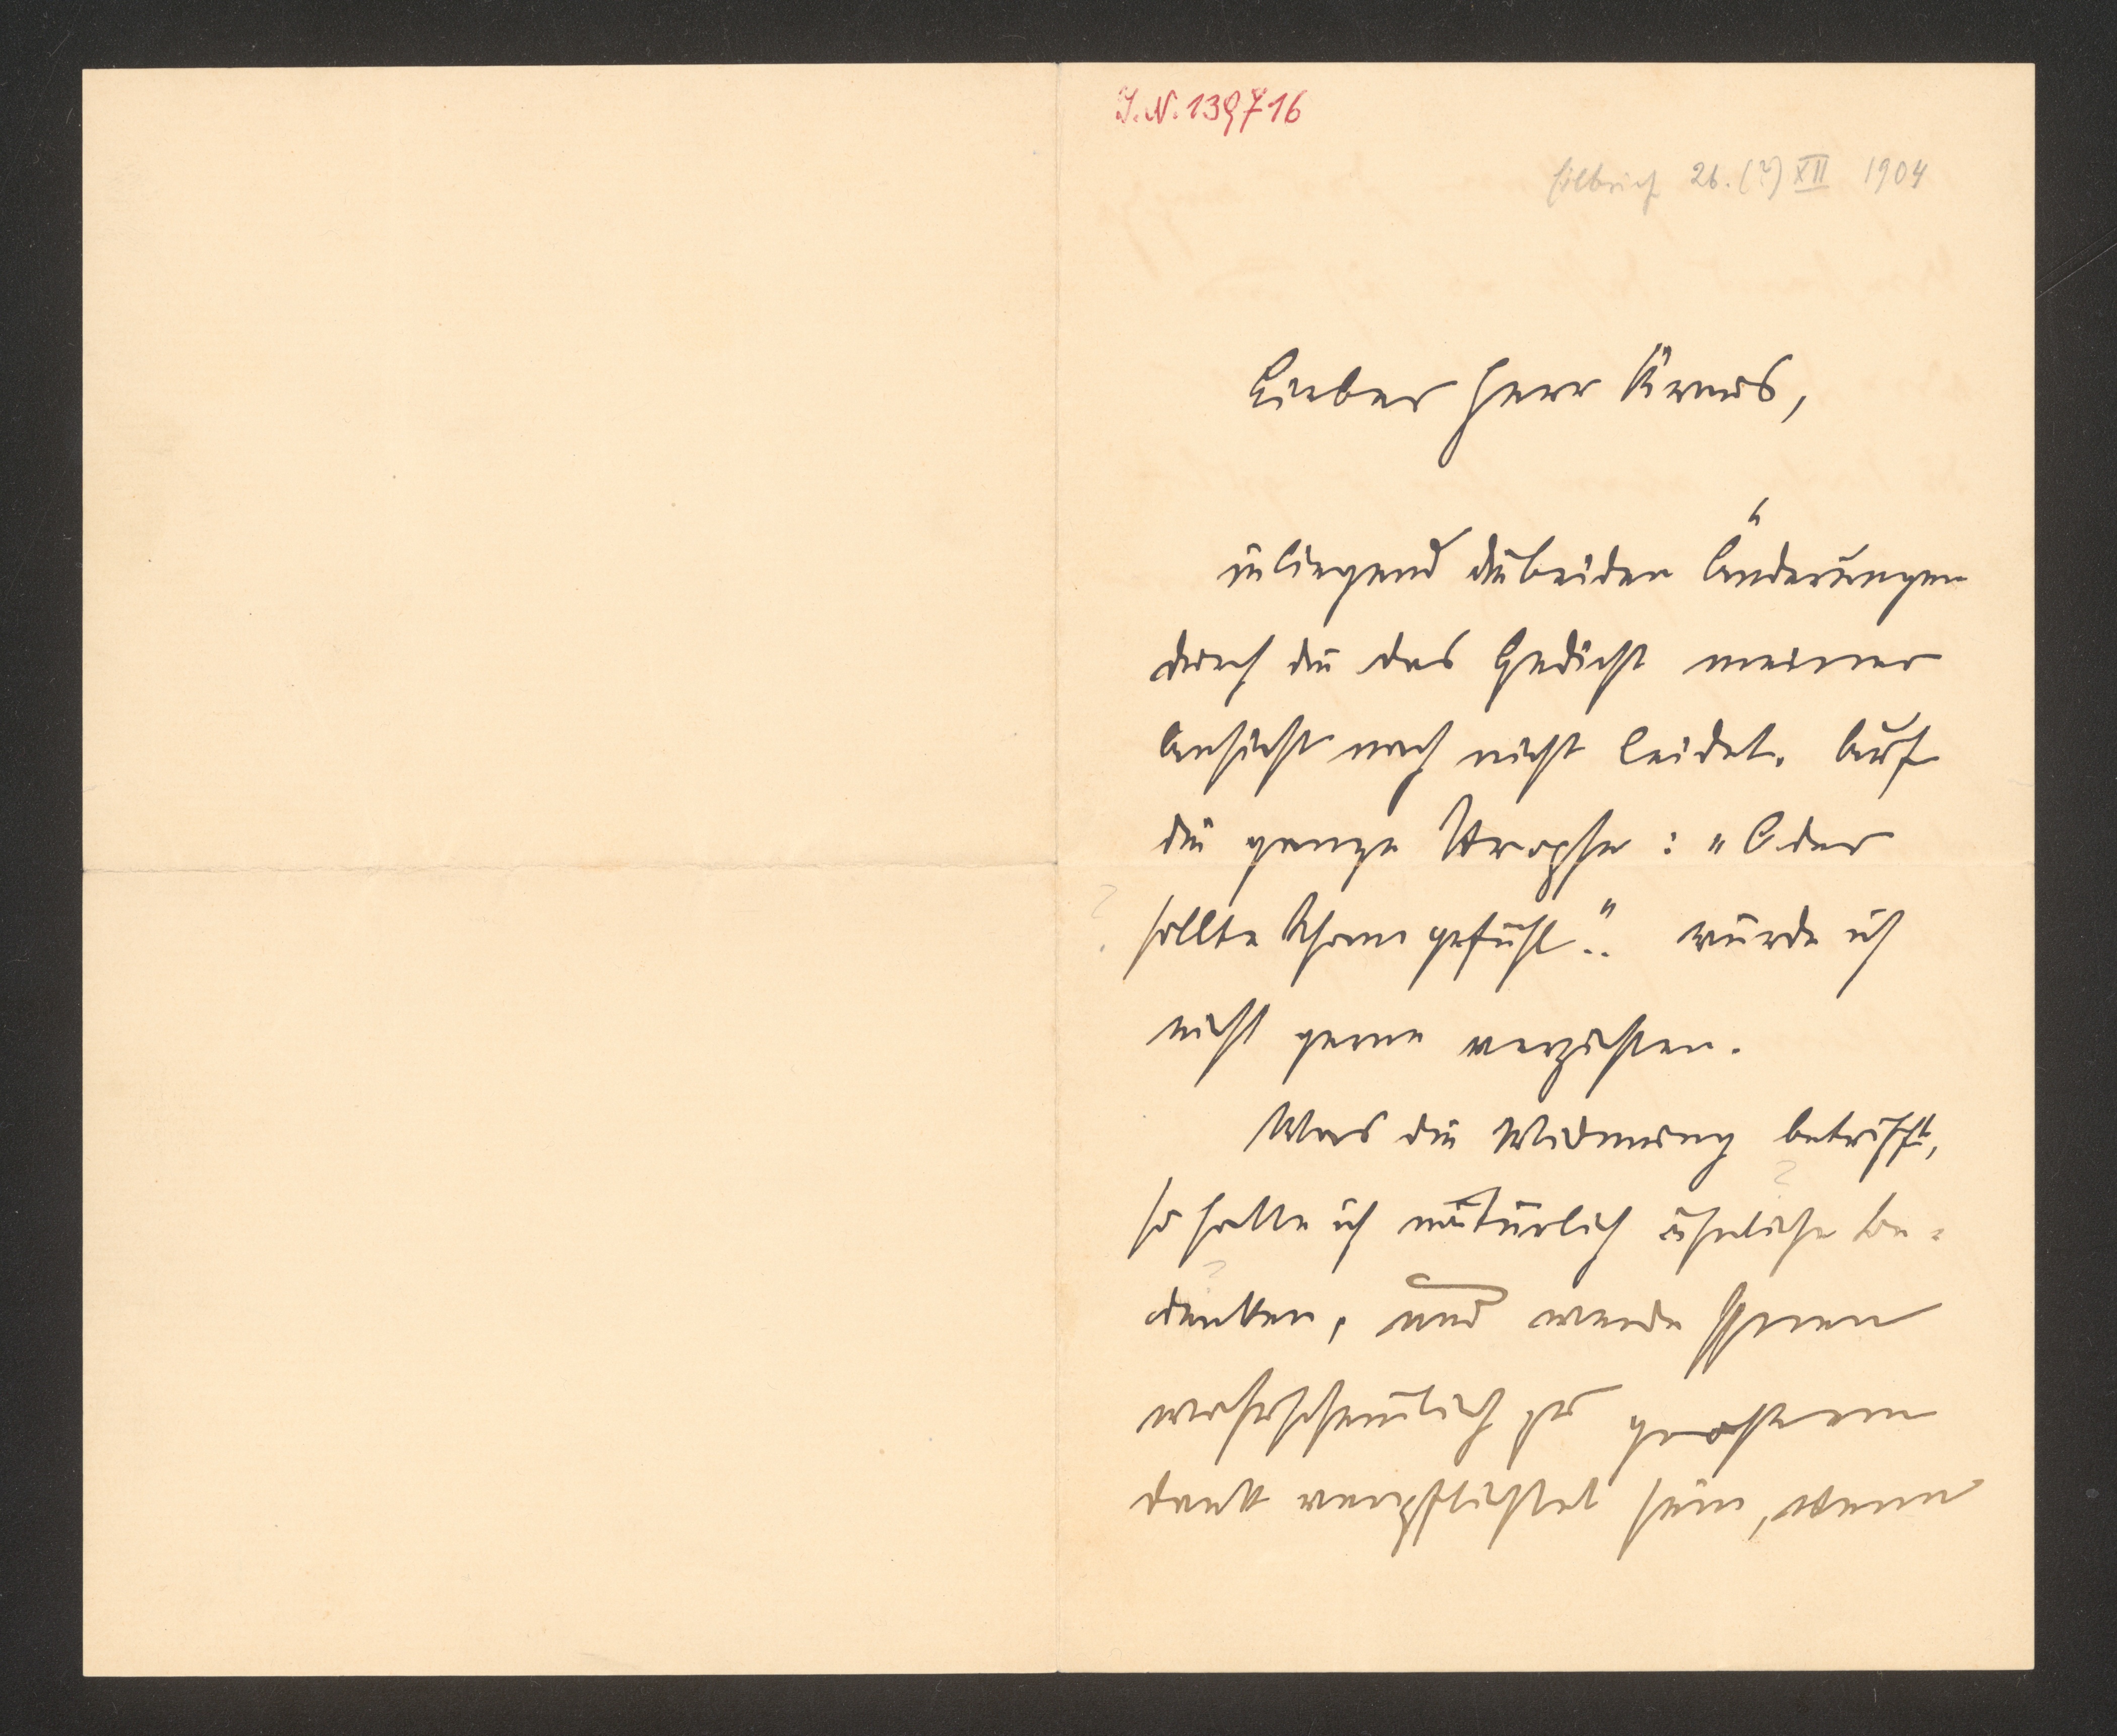 I.N. 139716
Eilbrief 26. (?) XII 1904
Lieber Herr Kraus,
inliegend die beiden Änderungen
durch die das Gedicht meiner
Ansicht nach nicht leidet. Auf
die ganze Strophe: „Oder
sollte Schamgefühl.." würde ich
nicht gerne verzichten.
Was die Widmung betrifft,
so hatte ich natürlich ähnliche Be-
denken, und werde Ihnen
wahrscheinlich zu grossem
Dank verpflichtet sein, wenn